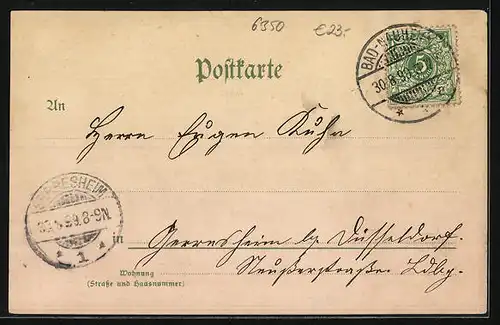 6350 €23.-
Postkarte
BAD-NAUHEIM
30.8.99.
5
An
Herrn Eugen Kuhn
GERRESHEIM
99.8-9N.
1
in Gerresheim bg. Düsseldorf.
Wohnung
(Straße und Hausnummer)
Neußerstraße Ldbg.